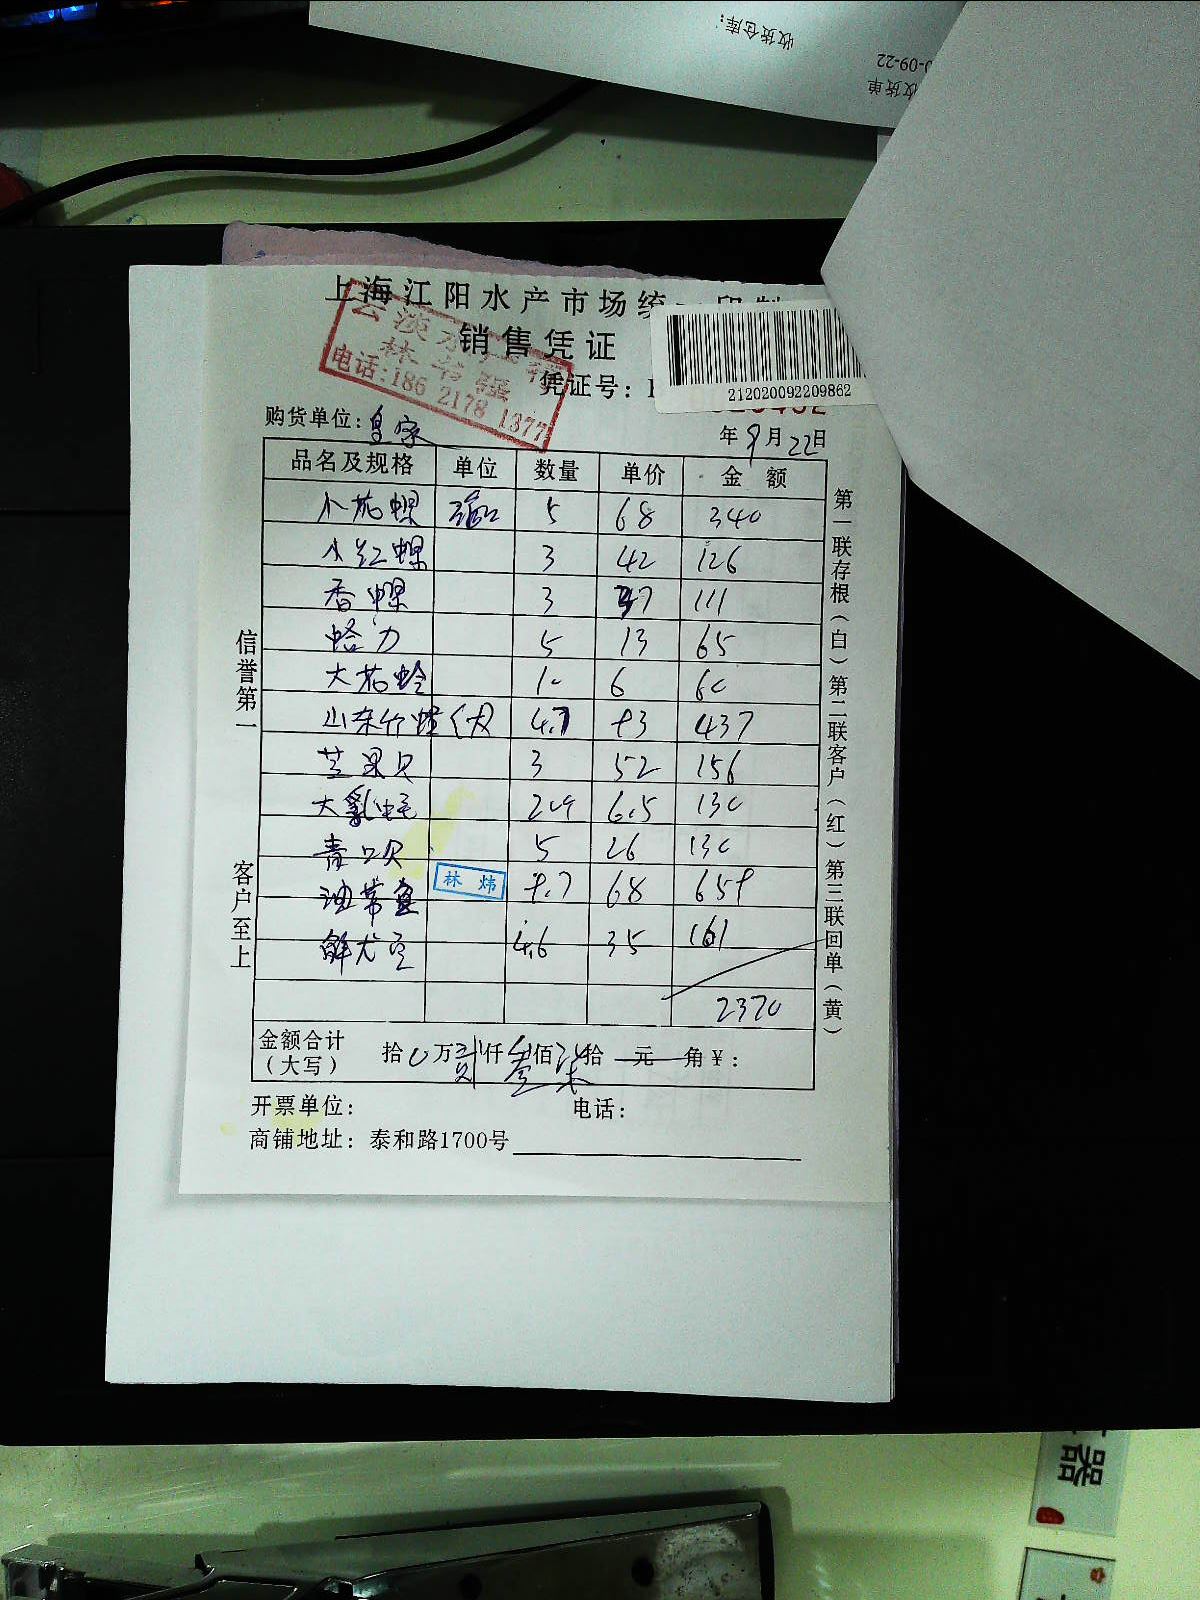 收货仓库:
0-09-22
收货单
上海江阳水产市场统一印制
销售凭证
云淡水产
林书强
电话:186 2178 1377
凭证号:
212020092209862
购货单位: 皇家
年 9 月 22 日
品名及规格 单位 数量 单价 金额
小花螺 5 68 340
小红螺 3 42 126
香螺 3 37 111
蛤力 5 13 65
大花蛤 10 6 60
山东竹蛏(大) 4.7 93 437
芒果贝 3 52 156
大乳蚝 20个 6.5 130
青口贝 5 26 130
油带鱼 9.7 68 659
林炜
鲜尤鱼 4.6 35 161
2370
金额合计(大写) 拾0万贰仟叁佰柒拾 元 角¥:
开票单位: 电话:
商铺地址: 泰和路1700号
信誉第一
客户至上
第一联存根(白)第二联客户(红)第三联回单(黄)
器